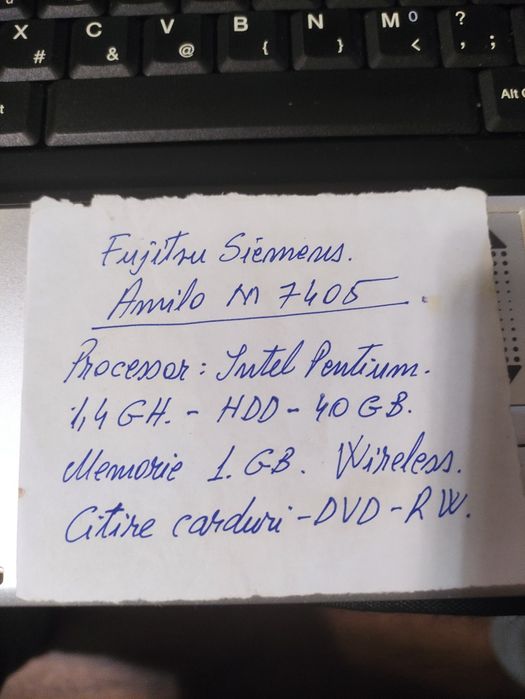 X C V B N M 0 ?
# & @ { } < , ;
Alt G
Fujitsu Siemens.
Amilo M 7405
Processor: Intel Pentium.
1,4 GH. - HDD - 40 GB.
Memorie 1. GB. Wireless.
Citire carduri - DVD - RW.